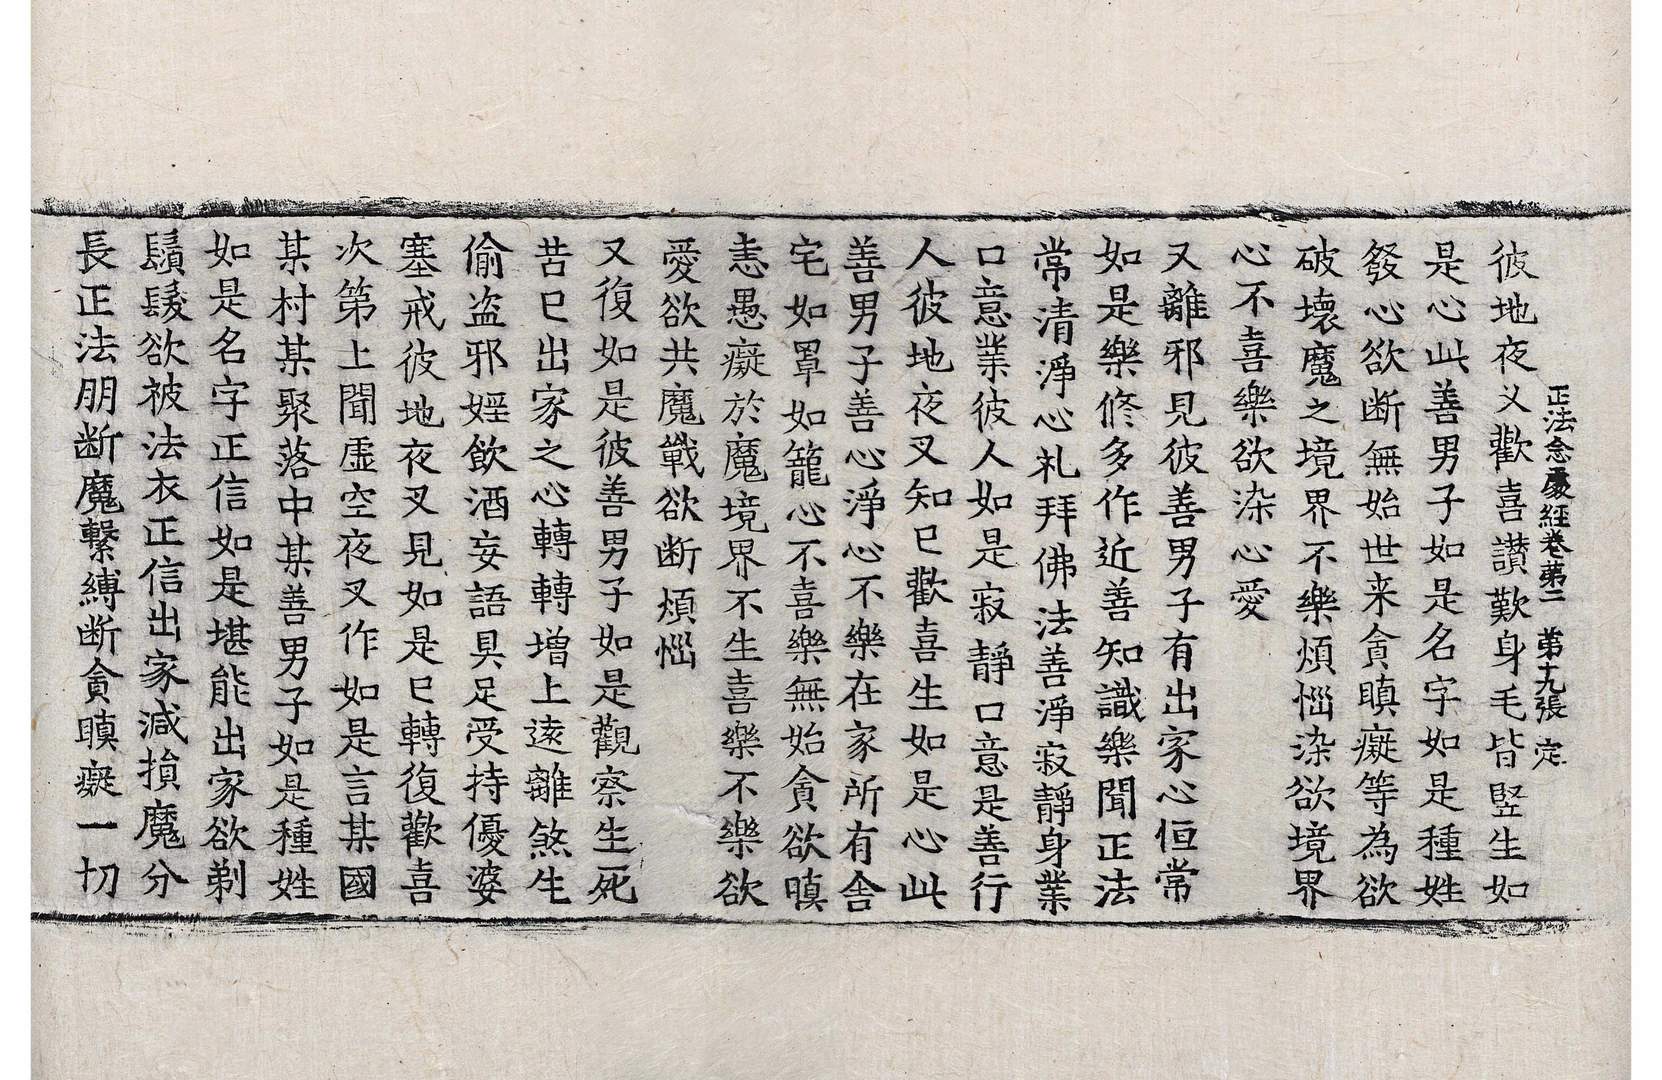 正法念處經卷第二　第十九張　定
彼地夜叉歡喜讃歎身毛皆竪生如
是心此善男子如是名字如是種姓
發心欲断無始世来貪瞋癡等為欲
破壞魔之境界不樂煩惱染欲境界
心不喜樂欲染心愛
又離邪見彼善男子有出家心恒常
如是樂修多作近善知識樂聞正法
常清淨心礼拜佛法善淨寂靜身業
口意業彼人如是寂靜口意是善行
人彼地夜叉知已歡喜生如是心此
善男子善心淨心不樂在家所有舎
宅如罩如籠心不喜樂無始貪欲瞋
恚愚癡於魔境界不生喜樂不樂欲
愛欲共魔戰欲断煩惱
又復如是彼善男子如是觀察生死
苦已出家之心轉轉增上遠離煞生
偷盗邪婬飲酒妄語具足受持優婆
塞戒彼地夜叉見如是已轉復歡喜
次第上聞虛空夜叉作如是言某國
某村某聚落中某善男子如是種姓
如是名字正信如是堪能出家欲剃
鬚髮欲被法衣正信出家減損魔分
長正法朋断魔繫縛断貪瞋癡一切